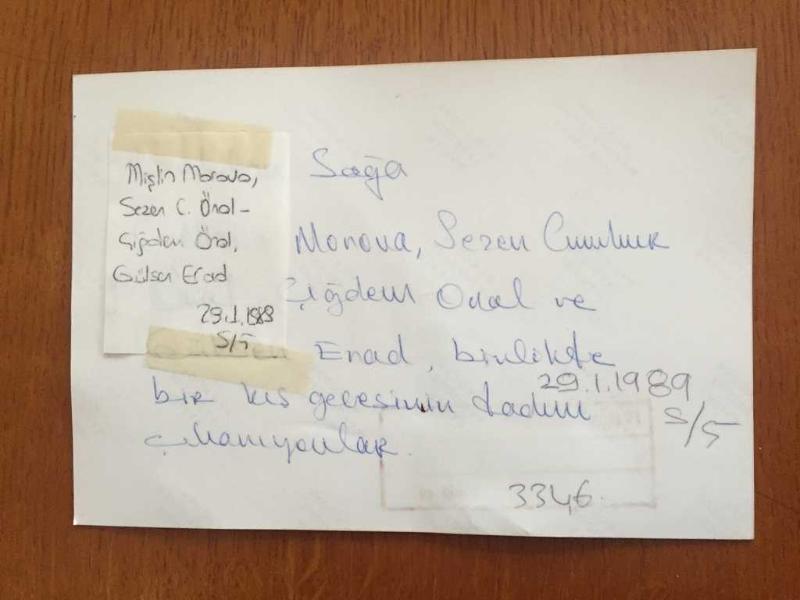 Miştin Morova,
Sezen C. Önal-
Çiğdem Önal,
Gülsen Erad
29.1.1989
S/5
Sağa
Morova, Sezen Cumhur
Çiğdem Onal ve
Erad, birlikte
29.1.1989
bir kış gecesinin tadını
S/5
çıkarıyorlar.
3346